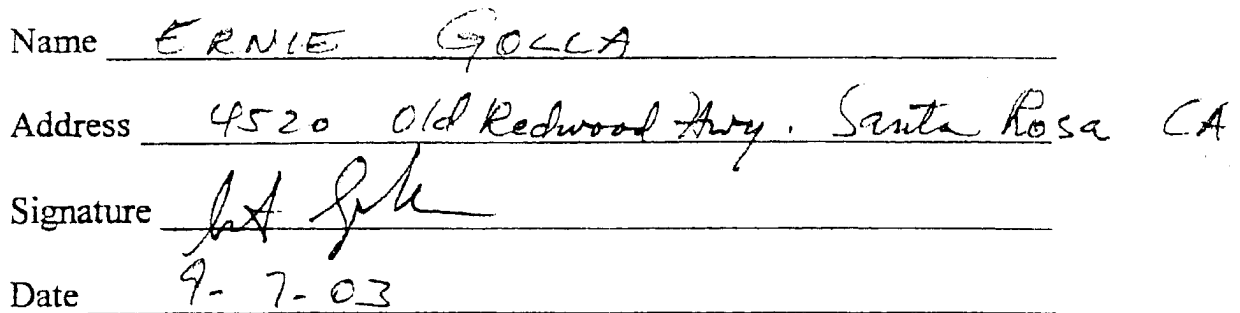 Name ERNIE GOLLA
Address 4520 Old Redwood Hwy. Santa Rosa CA
Signature
Date 9-7-03